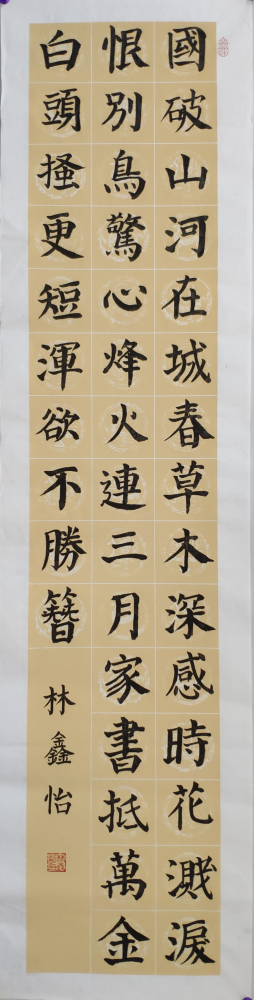 國破山河在城春草木深感時花濺淚
恨別鳥驚心烽火連三月家書抵萬金
白頭搔更短渾欲不勝簪
林鑫怡